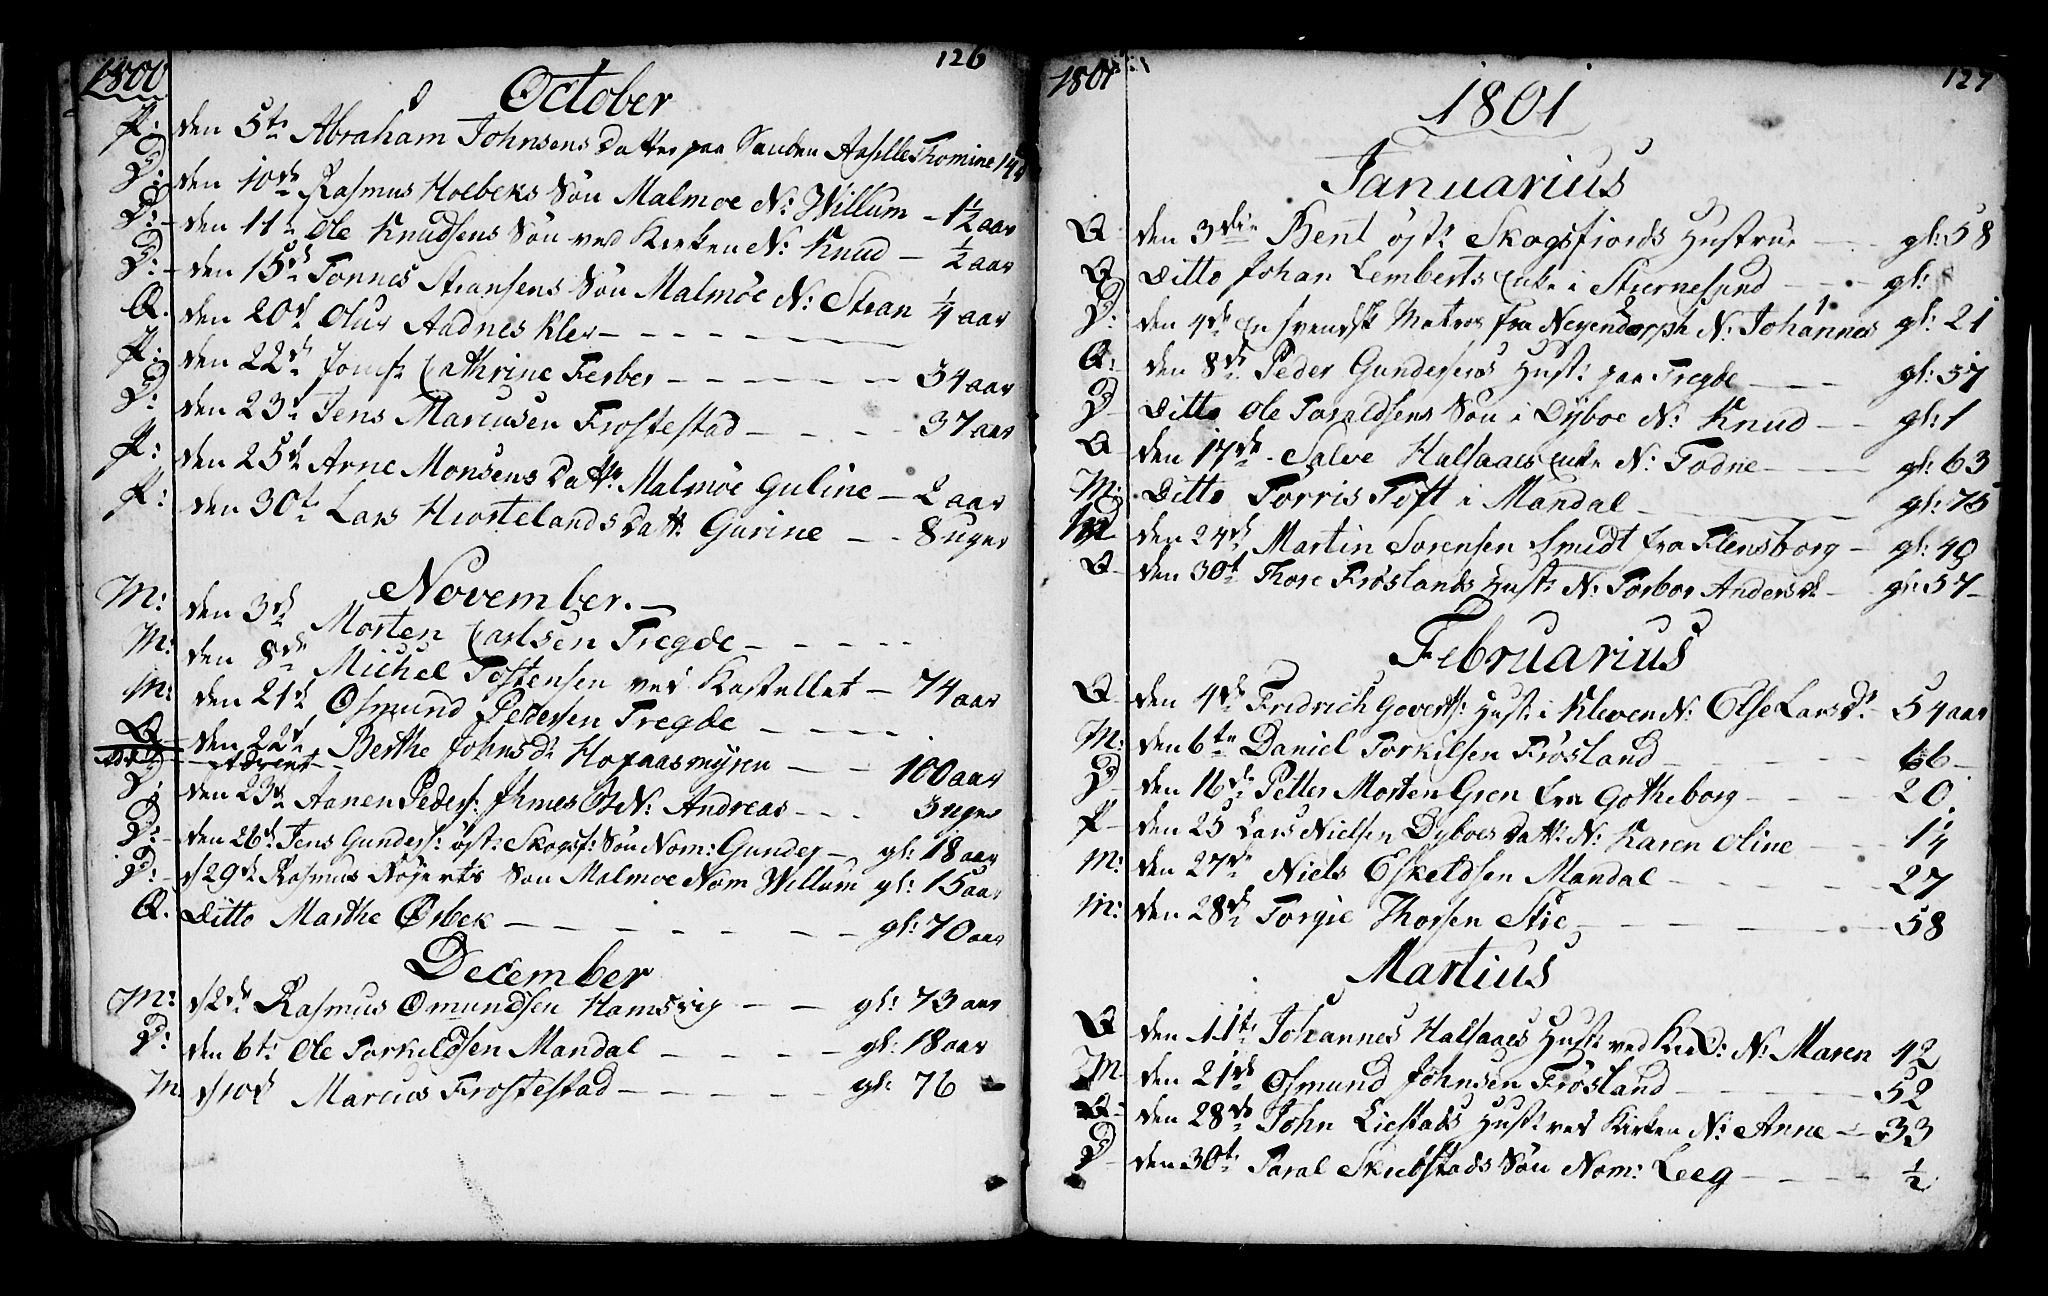 1800
126
October
P: den 5te Abraham Johnsens Datter paa Sanden Aselle Thomine 14
D: den 10de Rasmus Holbeks Søn Malmøe N: Willum – 1½ aar
D: – den 11te Ole Knudsens Søn ved Kirken N: Knud – ½ aar
D: – den 15d Tønnes Stransens Søn Malmøe N: Stran ¼ aar
Q. den 20d Oluv Audnes Kler – – – –
P: den 22de Jomf: Cathrine Ferber – – – – 34 aar
D: den 23de Jens Marcusen Frostestad – – – – 37 aar
P: den 25de Arne Monsens Datt: Malmøe Guline – 2 aar
P: den 30te Lars Hiortelands Datt: Gurine – – 8 uger
November. –
M: den 3de Morten Carlsen Tregde – – – –
M: den 8de Michel Tostensen ved Kastellet – 74 aar
M: den 21de Osmund Pedersen Tregde – – – –
Q – den 22de Berthe Johnsd: Hofaasmyren – – 100 aar
D: den 23de Aanen Peders: N: Andreas – – – 3 uger
D: – den 26de Jens Gunders: øst: Skogsf: Søn Nom: Gunder – gl: 18 aar
D: – d 29de Rasmus Søn Malmøe Nom Willum gl: 15 aar
Q. Ditto Marthe Ørbek – – – – – – gl: 70 aar
December
M: d 2de Rasmus Omundsen Hamsvig – – gl: 73 aar
D: den 6te Ole Torkildsen Mandal – – – – gl: 18 aar
M d 10d Marcus Frostestad – – – – gl: 76 –
1801
127
1801
Januarius
Q den 3die Bent øst: Skogsfiords Hustrue – – gl: 58
Q Ditto Johan Lemberts Enke i Stiernesund – – – gl:
D: den 4de En svensk Matros fra N: Johannes gl: 21
Q: den 8de Peder Gundersens Hust: paa Tregde – – – gl: 57
D Ditto Ole Taraldsens Søn i Dyboe N: Knud – – gl: 1
Q den 17de Salve Halsaaes Enke N: Todne – – gl: 63
M: Ditto Torris Toft i Mandal – – – – gl: 75
D den 24de Martin Sørensen Smidt fra Flensborg – gl: 49
Q – den 30te Thore Frøslands Hust: N: Torbor Andersd – gl: 57 –
Februarius
Q den 4de Fredrich Goverts: Hust: i Kleven N: Else Larsd: – 54 aar
M: den 6te Daniel Torkilsen Frøsland – – – – – 66 –
D den 16de Petter Morten Gren fra Gotheborg – – – – 20
P – den 25 Lars Nielsen Dyboes Datt: N: Karen Oline – – – 14
M: den 27de Niels Eskeldsen Mandal – – – – – 27
M: den 28de Torgie Thorsen Stie – – – – – 58
Martius
Q den 11te Johannes Halsaaes Hust: ved Kirk: N: Maren 42
M den 21de Osmund Johnsen Frøsland – – – – 52
Q – den 28de John Liestads Hust: ved Kirken N: Anne – 33
D den 30te Taral Skiebstads Søn Nom: Leeg – – – – ½